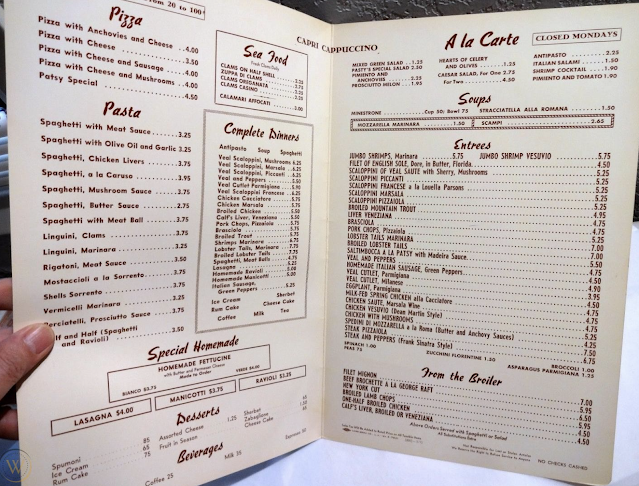 from 20 to 100
Pizza
Pizza with Anchovies and Cheese 4.00
Pizza with Cheese 3.50
Pizza with Cheese and Sausage 4.00
Pizza with Cheese and Mushrooms 4.00
Patsy Special 4.50
Pasta
Spaghetti with Meat Sauce 3.25
Spaghetti with Olive Oil and Garlic 3.25
Spaghetti, Chicken Livers 3.75
Spaghetti, a la Caruso 3.95
Spaghetti, Mushroom Sauce 3.75
Spaghetti, Butter Sauce 2.75
Spaghetti with Meat Ball 3.75
Linguini, Clams 3.75
Linguini, Marinara 3.25
Rigatoni, Meat Sauce 3.50
Mostaccioli a la Sorrento 3.75
Shells Sorrento 3.75
Vermicelli Marinara 3.25
Perciatelli, Prosciutto Sauce 3.75
Half and Half (Spaghetti
and Ravioli) 3.50
Sea Food
CLAMS ON HALF SHELL 2.25
ZUPPA DI CLAMS
CLAMS OREGANATA
CLAMS CASINO
CALAMARI AFFOCATI
Complete Dinners
Antipasto Soup Spaghetti
Veal Scaloppini, Mushrooms 6.25
Veal Scaloppini, Marsala 6.25
Veal Scaloppini, Piccanti 6.25
Veal and Peppers 5.50
Veal Cutlet Parmigiana 5.90
Chicken Cacciatore 5.75
Chicken Marsala 5.75
Broiled Chicken 5.50
Calf's Liver, Veneziana 5.50
Pork Chops, Pizzaiola
Brasciola
Broiled Trout
Shrimps Marinara
Lobster Tails, Marinara
Broiled Lobster Tails
Spaghetti, Meat Balls
Lasagna
Homemade Ravioli
Homemade Manicotti
Italian Sausage,
Green Peppers 5.25
Ice Cream Sherbet
Rum Cake Cheese Cake
Coffee Milk Tea
Special Homemade
HOMEMADE FETTUCINE
with Butter and Parmesan Cheese
Made to Order
BIANCO $3.75 VERDE $4.00
LASAGNA $4.00
MANICOTTI $3.75
RAVIOLI $3.25
Desserts
Spumoni 85
Ice Cream 65
Rum Cake 75
Assorted Cheese 1.25
Fruit in Season
Sherbet
Zabaglione
Cheese Cake
Beverages
Coffee 25
Milk 35
Espresso
CAPRI CAPPUCCINO
A la Carte
CLOSED MONDAYS
MIXED GREEN SALAD 1.25
PATSY'S SPECIAL SALAD 2.50
PIMIENTO AND
ANCHOVIES 2.25
PROSCIUTTO MELON 1.95
HEARTS OF CELERY
AND OLIVES 1.25
CAESAR SALAD, For One 2.75
For Two 4.50
ANTIPASTO 2.25
ITALIAN SALAMI 1.50
SHRIMP COCKTAIL 1.90
PIMIENTO AND TOMATO 1.90
Soups
MINESTRONE Cup 50; Bowl 75 STRACCIATELLA ALLA ROMANA 1.50
MOZZARELLA MARINARA 1.50
SCAMPI 2.65
Entrees
JUMBO SHRIMPS, Marinara 5.75 JUMBO SHRIMP VESUVIO 5.75
FILET OF ENGLISH SOLE, Dore, in Butter, Florida 4.50
SCALOPPINI OF VEAL SAUTE with Sherry, Mushrooms 5.25
SCALOPPINI PICCANTI 5.25
SCALOPPINI FRANCESE a la Louella Parsons 5.25
SCALOPPINI MARSALA
SCALOPPINI PIZZAIOLA
BROILED MOUNTAIN TROUT
LIVER VENEZIANA
BRASCIOLA
PORK CHOPS, Pizzaiola
LOBSTER TAILS MARINARA
BROILED LOBSTER TAILS
SALTIMBOCCA A LA PATSY with Madeira Sauce
VEAL AND PEPPERS
HOMEMADE ITALIAN SAUSAGE, Green Peppers
VEAL CUTLET, Parmigiana
VEAL CUTLET, Milanese
EGGPLANT, Parmigiana
MILK-FED SPRING CHICKEN alla Cacciatore
CHICKEN SAUTE, Marsala Wine
CHICKEN VESUVIO (Dean Martin Style)
CHICKEN WITH MUSHROOMS
SPEDINI DI MOZZARELLA a la Roma (Butter and Anchovy Sauce)
STEAK PIZZAIOLA
STEAK and PEPPERS (Frank Sinatra Style) 6.75
SPINACH 1.00
PEAS 75
ZUCCHINI FLORENTINE 1.50
BROCCOLI 1.00
ASPARAGUS PARMIGIANA 1.25
From the Broiler
FILET MIGNON 7.00
BEEF BROCHETTE A LA GEORGE RAFT 5.95
NEW YORK CUT 6.50
BROILED LAMB CHOPS
ONE-HALF BROILED CHICKEN 4.50
CALF'S LIVER, BROILED OR VENEZIANA 4.50
Above Orders Served with Spaghetti or Salad
All Substitutions Extra
NO CHECKS CASHED